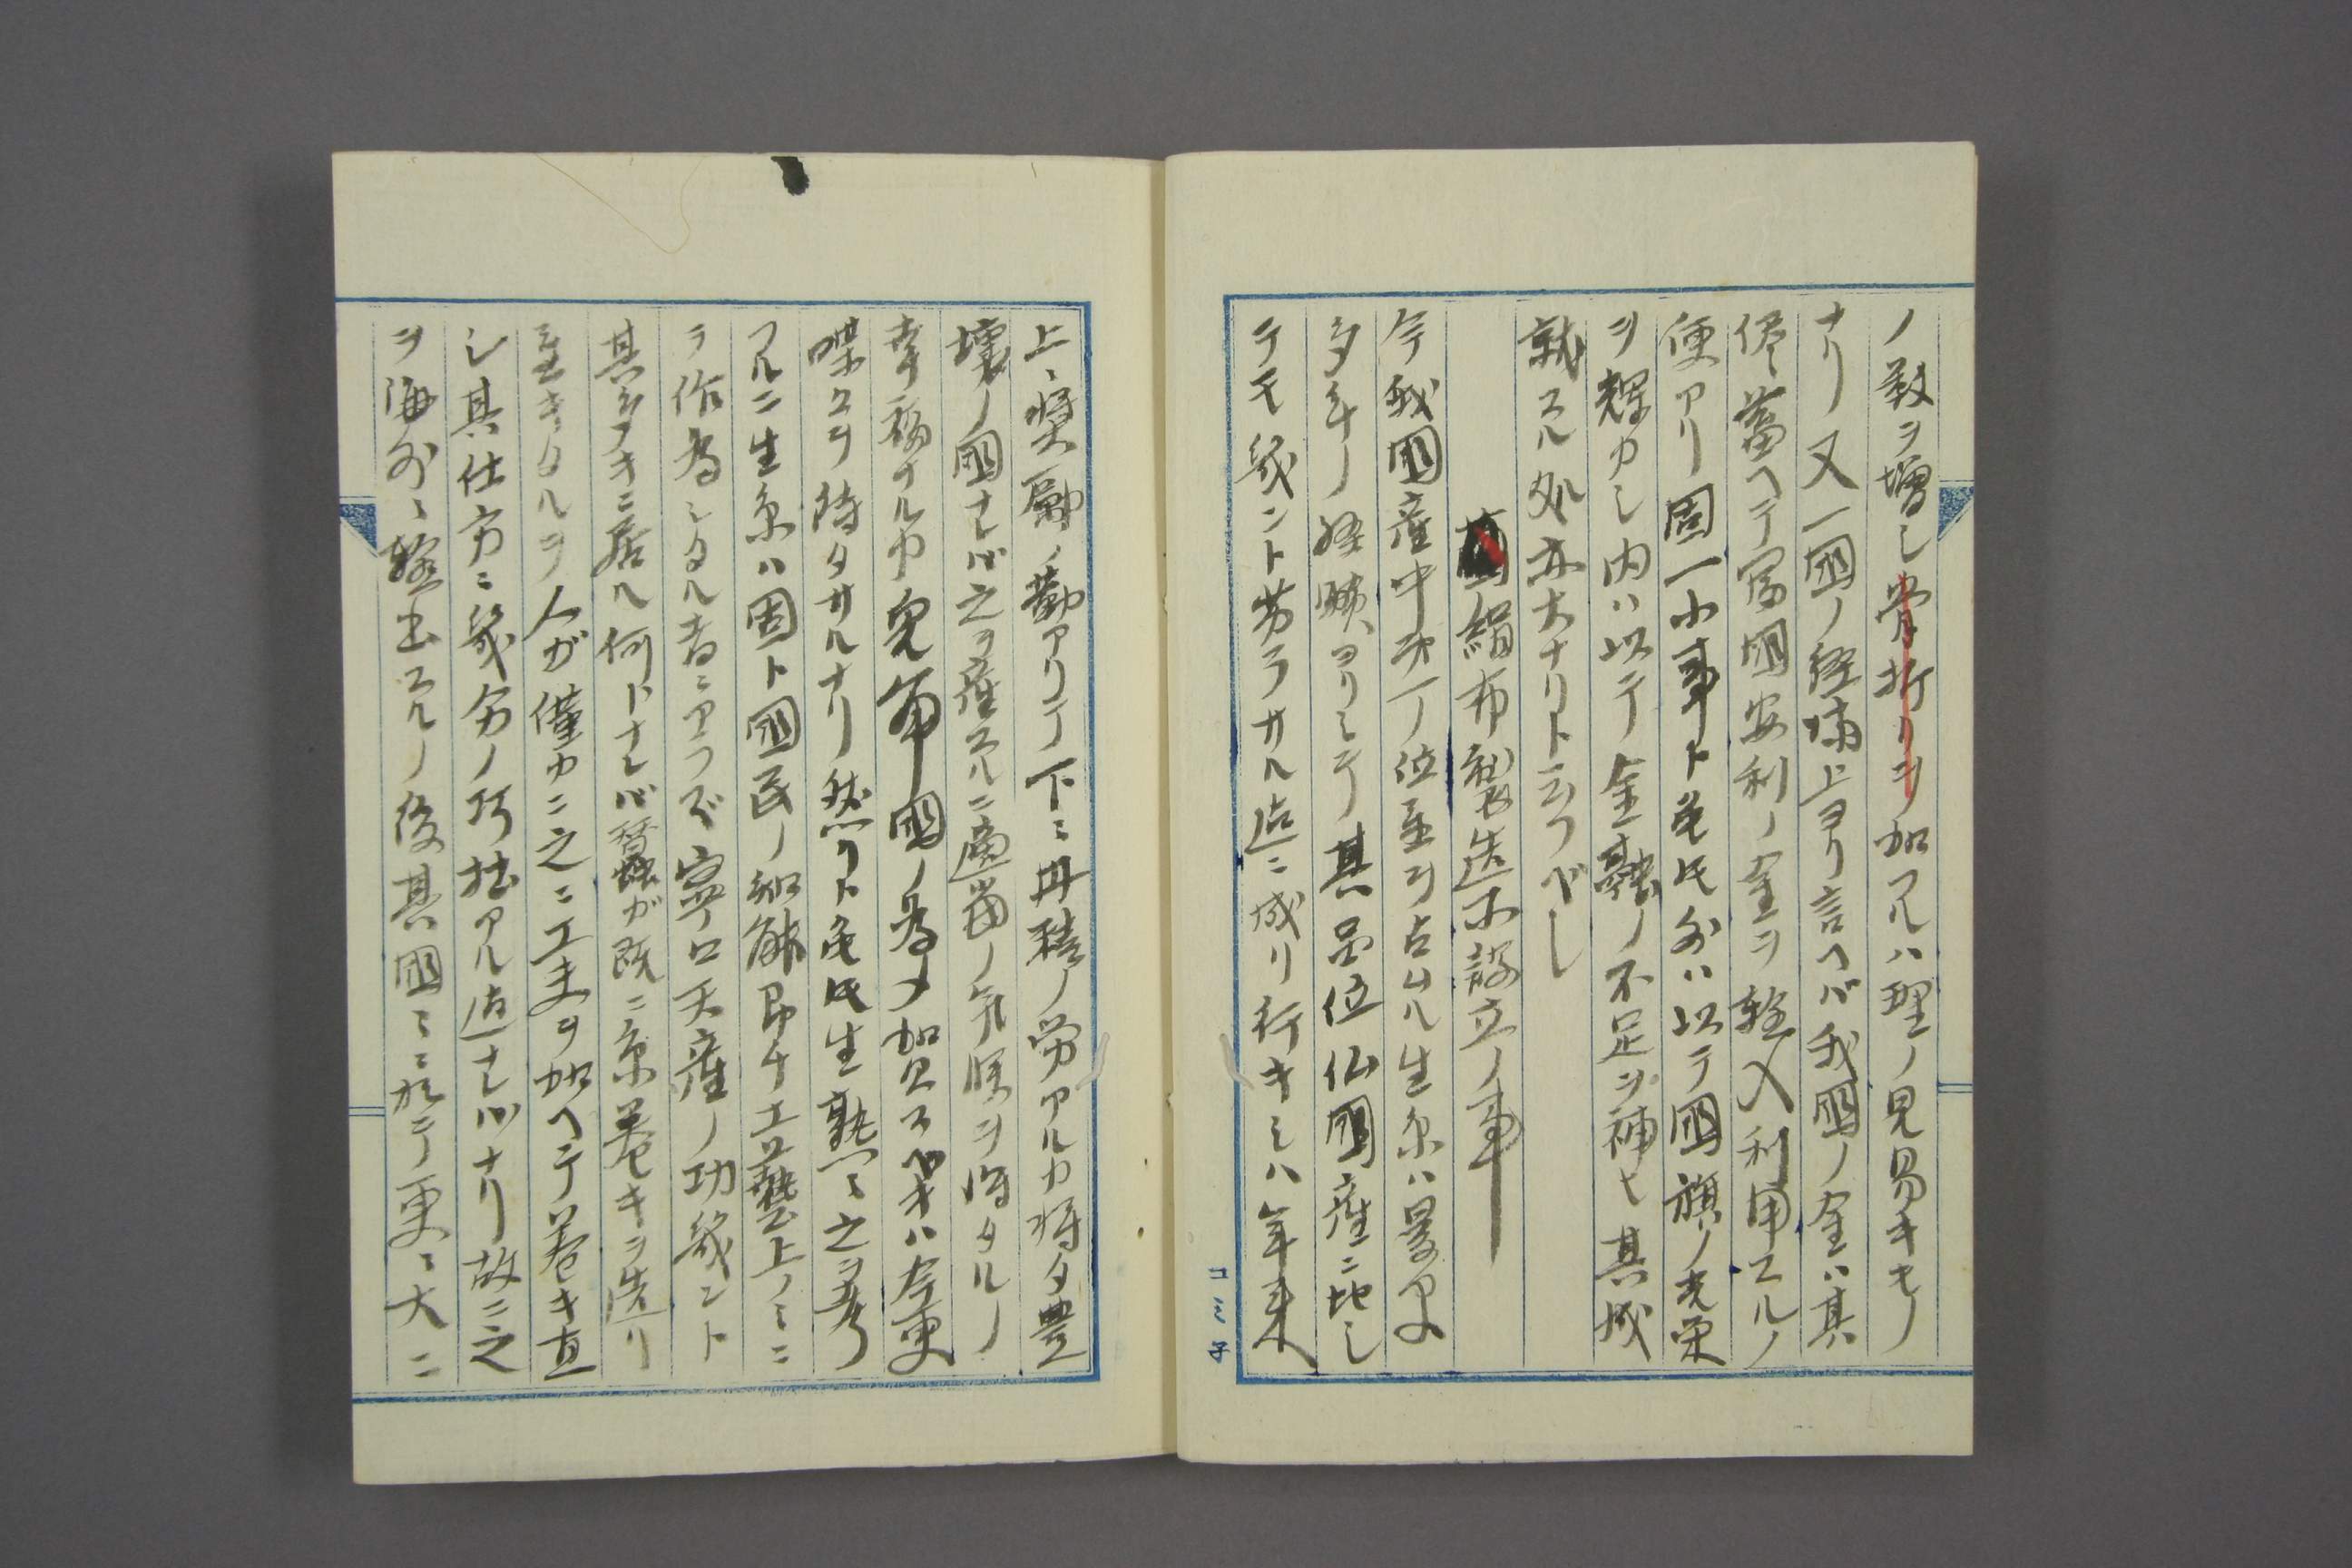 ノ数ヲ増シ骨折リヲ加フルハ理ノ見易キモノ
ナリ又一國ノ経済上ヨリ言ヘバ我國ノ金ハ其
儘蓄ヘテ富國安利ノ金ヲ輸入利用スルノ
便アリ固一小事ト雖𪜈外ハ以テ國旗ノ光栄
ヲ輝カシ内ハ以テ金融ノ不足ヲ補ヒ其成
就スル処亦大ナリト云フベシ
絹布製造所設立ノ事
今我國産中第一ノ位置ヲ占ムル生糸ハ
多年ノ経験ヨリシテ其品位仏國産ニ地シ
テモ幾ント劣ラサル迄ニ成リ行キシハ年来
上ニ奨勵ノ勸アリテ下ニ丹精ノ労アルカ将タ豊
壌ノ國ナレバ之ヲ産スルニ適當ノ気候ヲ得タルノ
幸福ナルカ兎角國ノ為メ賀スベキハ今更
喋々ヲ待タサルナリ然リト雖𪜈生熟ニ之ヲ考
フルニ生糸ハ固ト國民ノ知能即チ工藝上ノミニ
テ作為シタル者ニアラズ寧ロ天産ノ功幾ント
其多キニ居ル何トナレバ蚕蟲ガ既ニ糸巻キヲ造リ
至キタルヲ人ガ僅カニ之ニ工夫ヲ加ヘテ巻キ直
シ其仕方ニ幾分ノ巧拙アル迄ナレバナリ故ニ之
ヲ海外ニ輸出スルノ後其國ニ於テ更ニ大ニ
コミ子